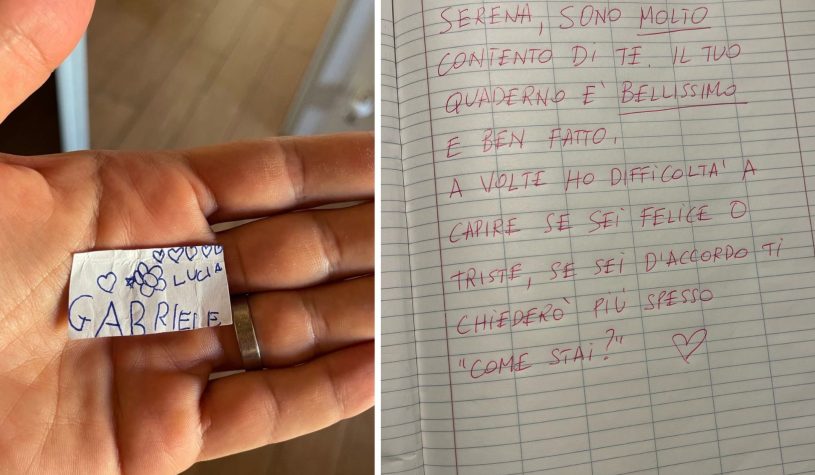 LUCIA
GABRIELE
SERENA, SONO MOLTO
CONTENTO DI TE. IL TUO
QUADERNO E' BELLISSIMO
E BEN FATTO.
A VOLTE HO DIFFICOLTA' A
CAPIRE SE SEI FELICE O
TRISTE, SE SEI D'ACCORDO TI
CHIEDERO' PIÙ SPESSO
"COME STAI?"